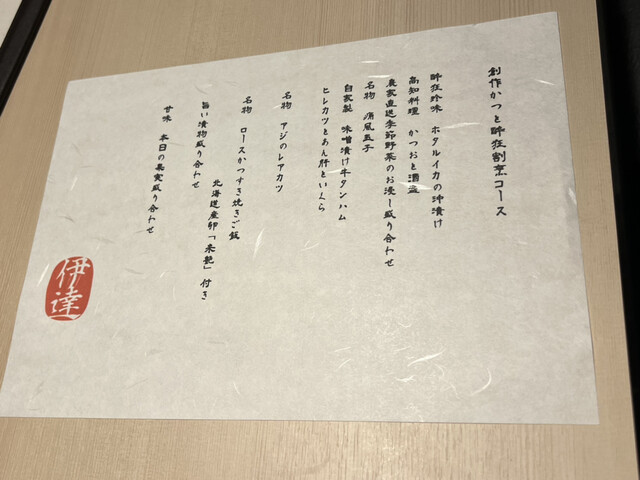 創作かつと酔狂割烹コース
酔狂珍味 ホタルイカの沖漬け
高知料理 かつおと酒盗
農家直送季節野菜のお浸し盛り合わせ
名物 痛風玉子
自家製 味噌漬け牛タンハム
ヒレカツとあん肝といくら
名物 アジのレアカツ
名物 ロースかつすき焼きご飯
北海道産卵「米艶」付き
旨い漬物盛り合わせ
甘味 本日の果実盛り合わせ
伊達